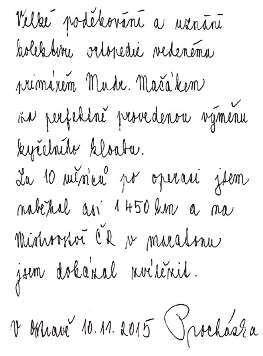 Velké poděkování a uznání
kolektivu ortopedie vedeného
primářem Mudr. Mačákem
za perfektně provedenou výměnu
kyčelního kloubu.
Za 10 měsíců po operaci jsem
naběhal asi 1 450 km a na
Mistrovství ČR v maratonu
jsem dokázal zvítězit.
V Ostravě 10.11.2015 Procházka